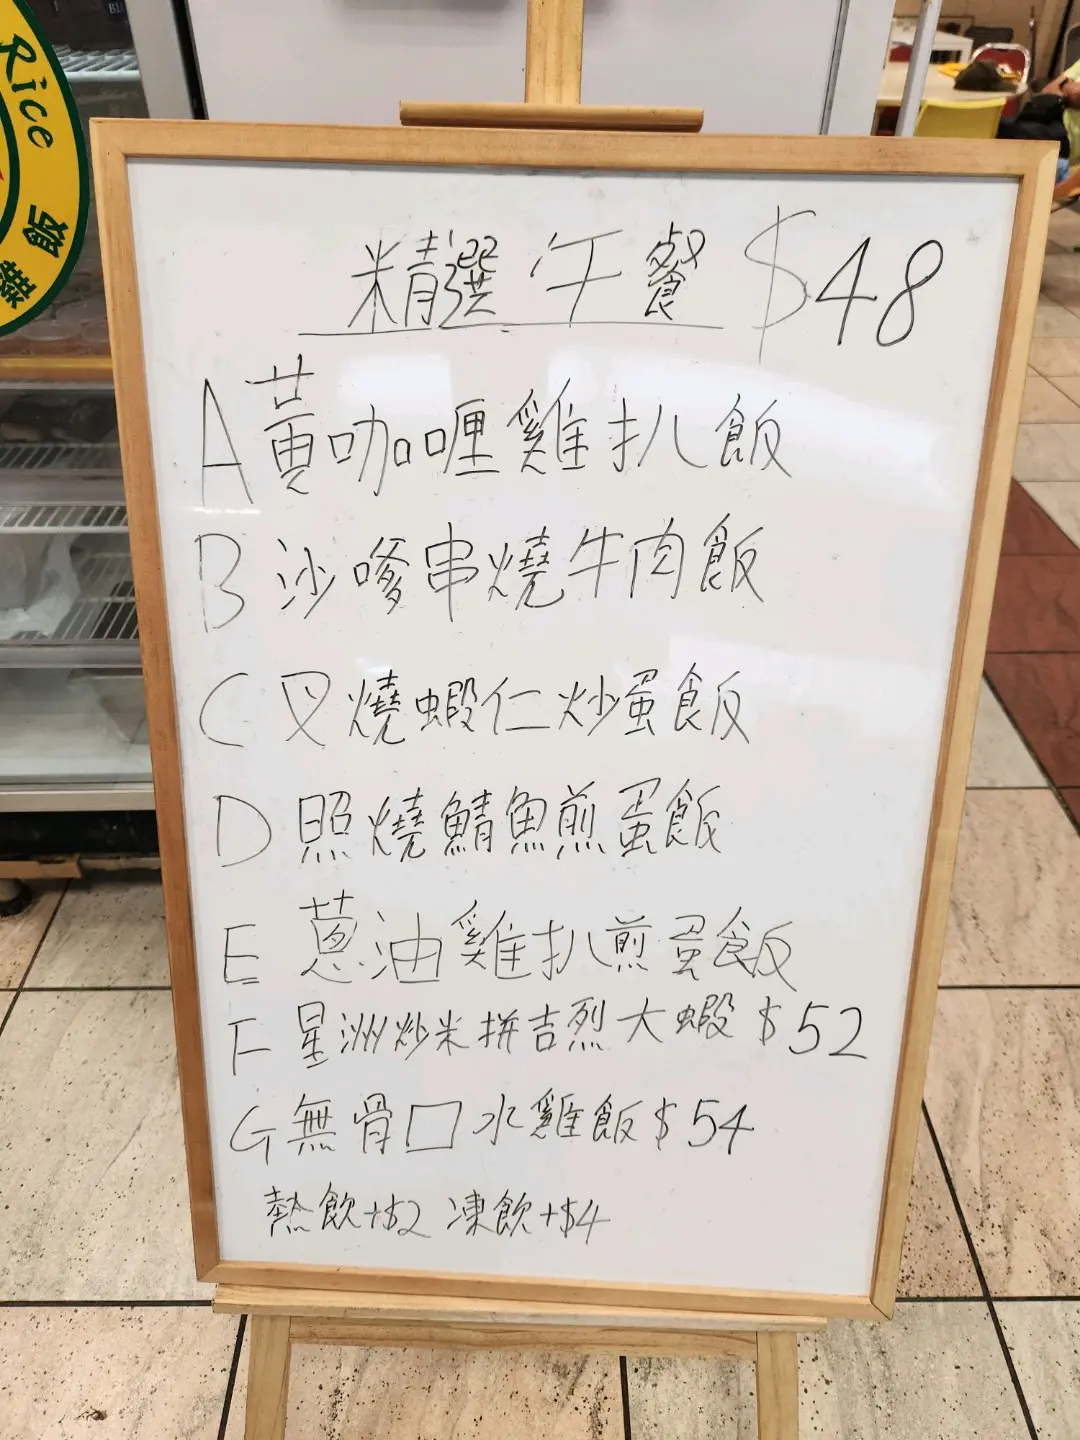 Rice
雞飯
精選午餐 $48
A 黃咖喱雞扒飯
B 沙嗲串燒牛肉飯
C 叉燒蝦仁炒蛋飯
D 照燒鯖魚煎蛋飯
E 蔥油雞扒煎蛋飯
F 星洲炒米拼吉烈大蝦 $52
G 無骨口水雞飯 $54
熱飲+$2 凍飲+$4